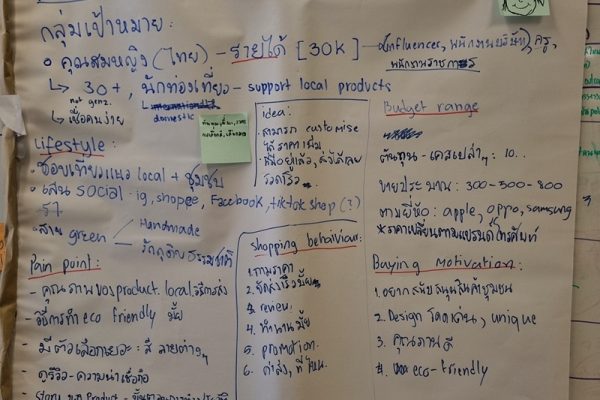 กลุ่มเป้าหมาย:
คุณสมหญิง (ไทย) – รายได้ [30K] – influencer, พนักงานบริษัท, ครู,
พนักงานราชการ
↳ 30+, นักท่องเที่ยว – support local products
not genz.
domestic
↳ เชื่อคนง่าย
Lifestyle:
• ชอบเที่ยวแนว local + ชุมชน
• เล่น social - ig, shopee, Facebook, tiktok shop (?)
• สาย green
Handmade
วัตถุดิบธรรมชาติ
Pain point:
- คุณภาพของ product. local
- วิธีการทำ eco friendly มั้ย
- มีตัวเลือกเยอะ: สี ลายต่างๆ
- ดูรีวิว - ความน่าเชื่อถือ
idea:
- สามารถ customise
shopping behaviour:
1. ถามราคา
3. review.
4. ทำนานมั้ย
5. promotion.
6. ค่าส่ง,
Budget range
ต้นทุน - เคสเปล่าๆ: 10..
ขายประมาณ: 300-500-800
ตามยี่ห้อ: apple, oppo, samsung
*ราคาเปลี่ยนตามแบรนด์โทรศัพท์
Buying Motivation:
1. อยากสนับสนุนสินค้าชุมชน
2. Design โดดเด่น, unique
3. คุณภาพดี
4. eco-friendly